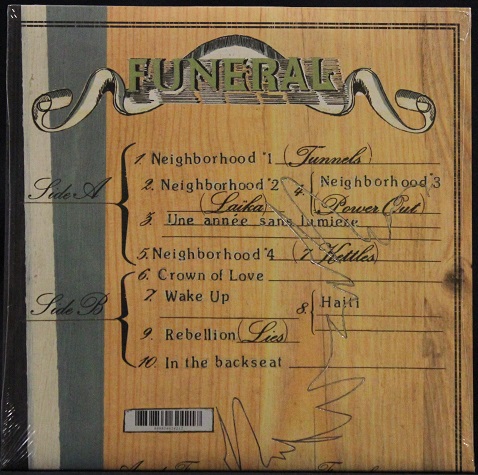 FUNERAL
Side A
1. Neighborhood #1 (Tunnels)
2. Neighborhood #2
(Laika)
4. Neighborhood #3
Power Out
3. Une année sans lumiere
5. Neighborhood #4 (7 Kettles)
Side B
6. Crown of Love
7. Wake Up
8. Haiti
9. Rebellion (Lies)
10. In the backseat